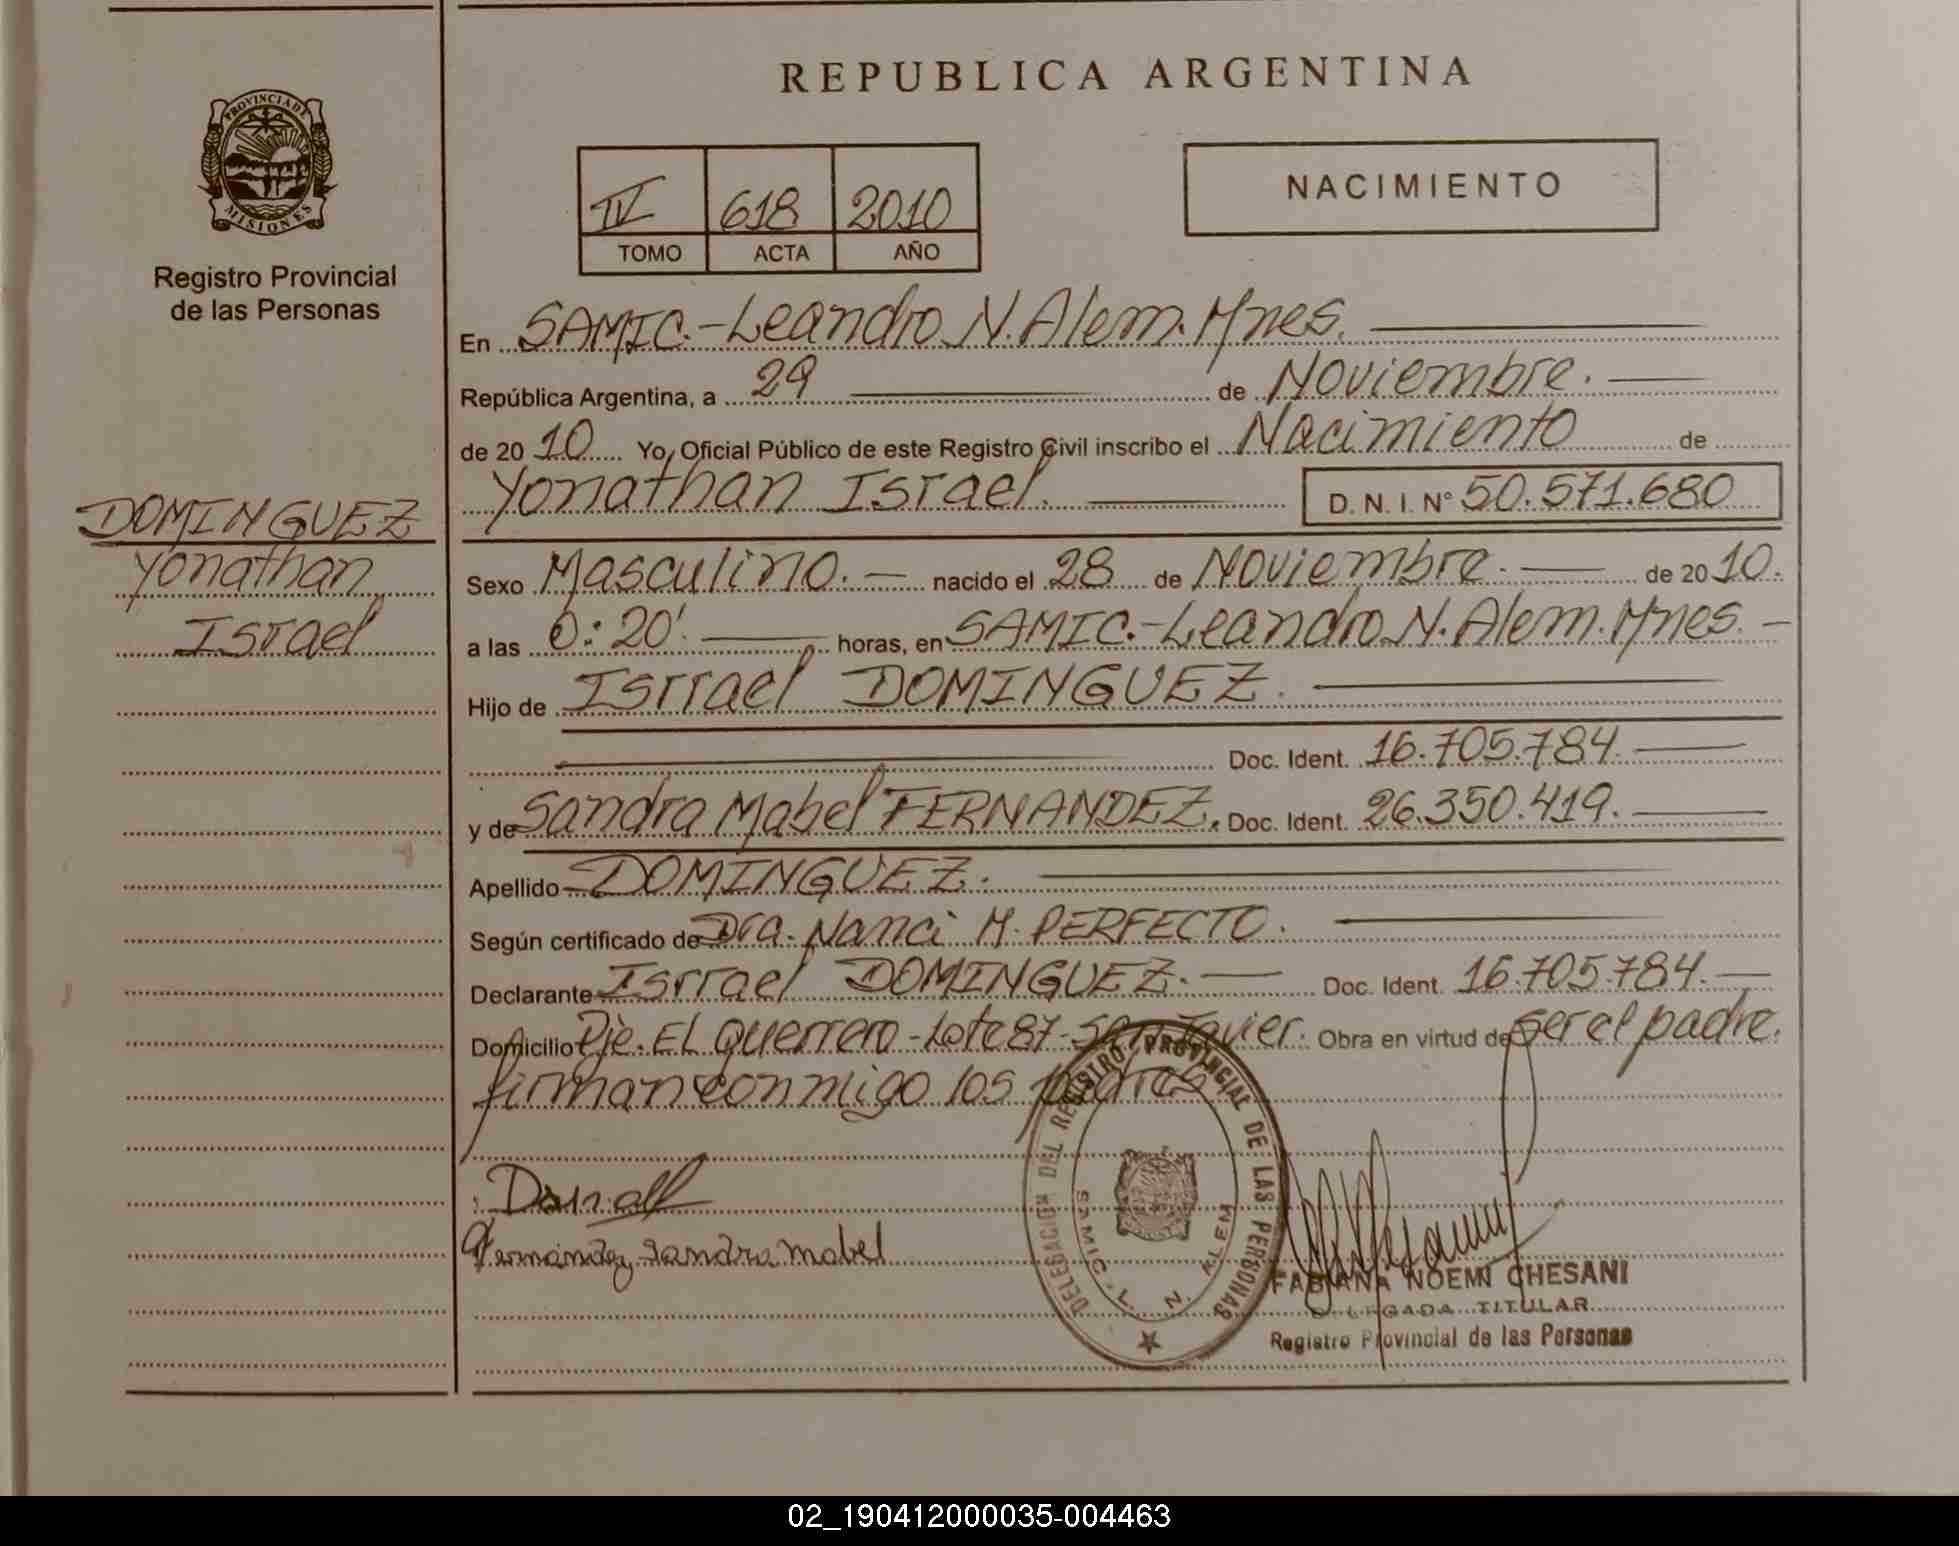 REPUBLICA ARGENTINA
PROVINCIA DE
MISIONES
Registro Provincial
de las Personas
IV 618 2010
TOMO ACTA AÑO
NACIMIENTO
En SAMIC.-Leandro N. Alem. Mnes.
República Argentina, a 29 de Noviembre.
de 2010 Yo, Oficial Público de este Registro Civil inscribo el Nacimiento de
Yonathan Israel. D. N. I. N° 50.571.680
DOMINGUEZ
Yonathan
Israel
Sexo Masculino. nacido el 28 de Noviembre. de 2010.
a las 0:20'. horas, en SAMIC.-Leandro N. Alem. Mnes.
Hijo de Isrrael DOMINGUEZ.
Doc. Ident. 16.705.784.
y de Sandra Mabel FERNANDEZ. Doc. Ident. 26.350.419.
Apellido DOMINGUEZ.
Según certificado de Dra. Nanci M. PERFECTO.
Declarante Isrrael DOMINGUEZ. Doc. Ident. 16.705.784.
Domicilio Pje. EL Guerrero-Lote 87-San Javier. Obra en virtud de ser el padre.
firman conmigo los padres
Fernández Sandra mabel
DELEGACION DEL REGISTRO PROVINCIAL DE LAS PERSONAS
SAMIC. L. N. ALEM
FABIANA NOEMI CHESANI
DELEGADA TITULAR
Registro Provincial de las Personas
02_190412000035-004463